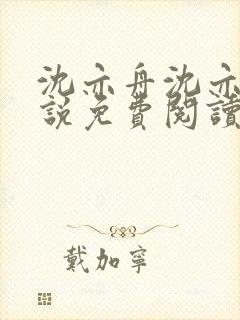 沈亦舟沈亦
說免費閱讀
戴加寧